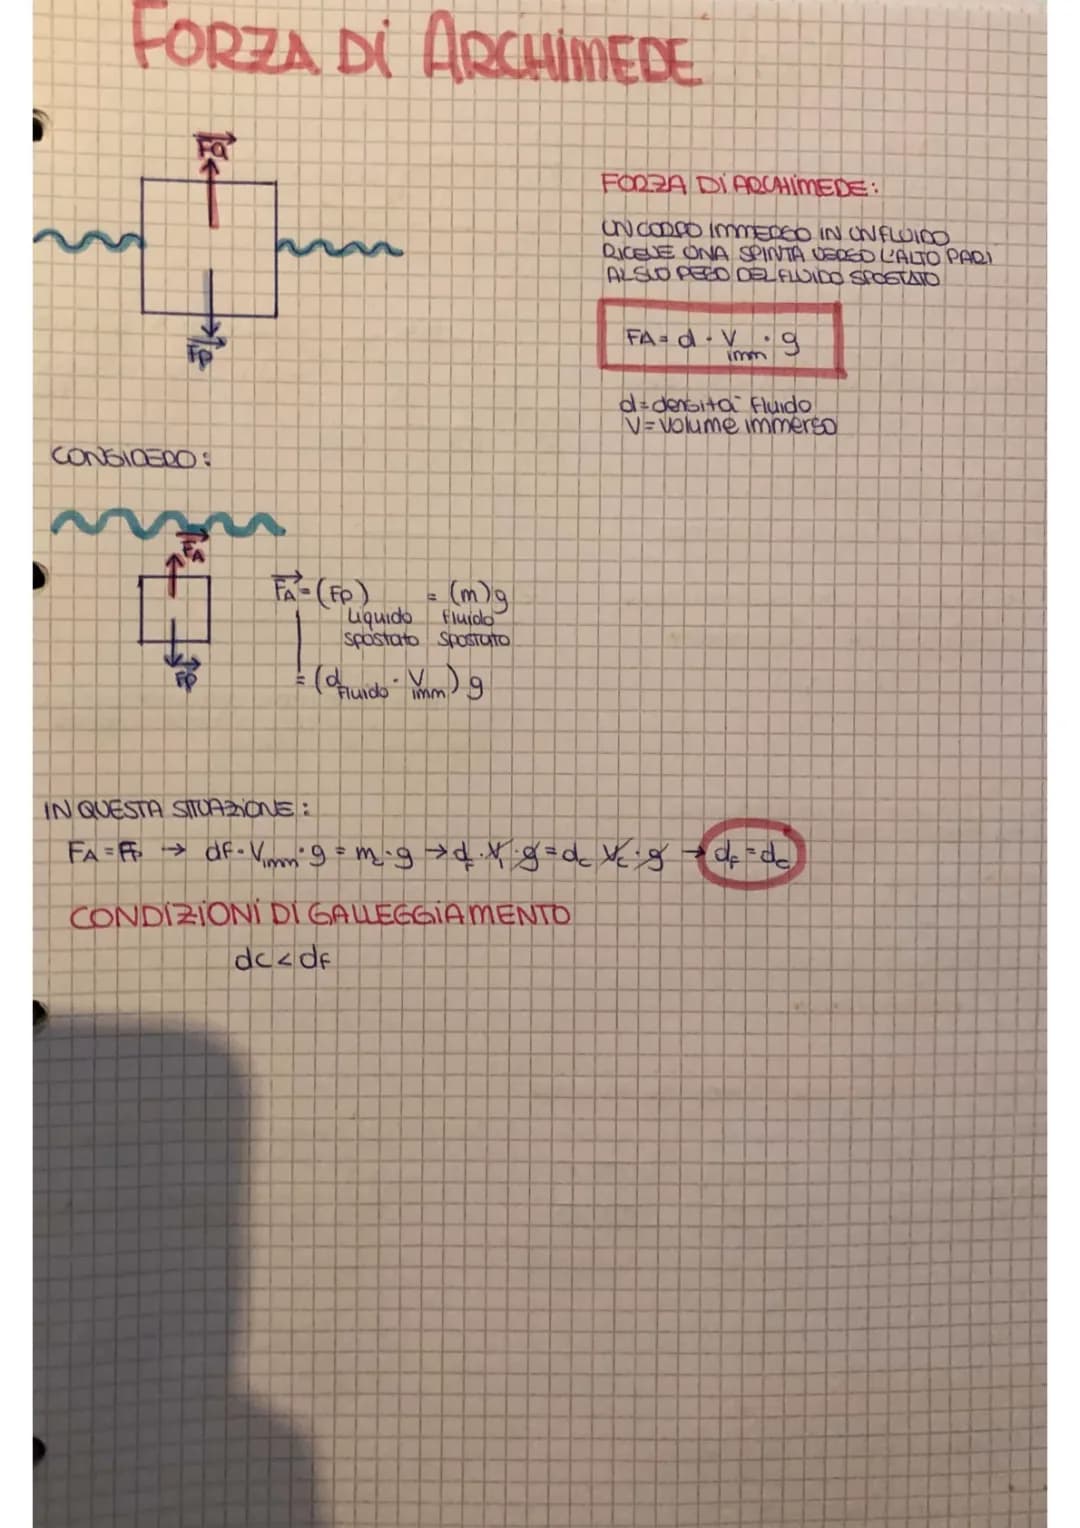 FORZA Di ARCHIMEDE
Fa
FORZA Di ARCHIMEDE:
UN CORPO IMMERSO IN UN FLUIDO
RICEVE UNA SPINTA VERSO L'ALTO PARI
AL SUO PESO DEL FLUIDO SPOSTATO
Fp
FA = d · V imm · g
d = densità fluido
V = volume immerso
CONSIDERO:
FA
FA = (Fp) = (m)g
Liquido fluido
spostato spostato
Fp
= (d fluido · V imm) g
IN QUESTA SITUAZIONE:
FA = Fp → dF · Vimm · g = mc · g → dF · Vi · g = dc Vc · g → dF = dc
CONDIZIONI DI GALLEGGIAMENTO
dc < dF